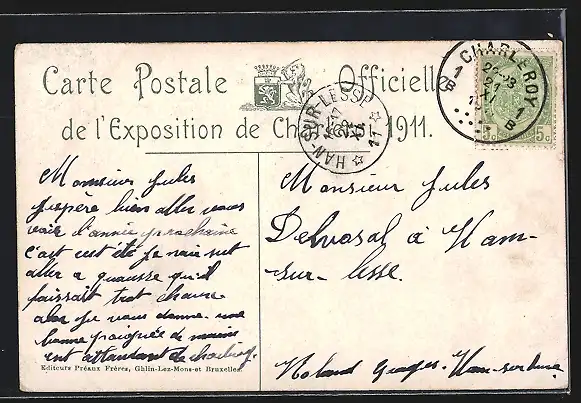 Carte Postale Officielle
de l'Exposition de Charleroi 1911.
HAN-SUR-LESSE
CHARLEROY 1
1 B
5c 5c
Monsieur Jules
j'espère bien aller vous
voir l'année prochaine
c'est cet été je
aller a qu'il
faisait trot
alor je vous donne une
bonne poignée de mains
en attendant de
Editeurs Préaux Frères, Ghlin-Lez-Mons et Bruxelles.
Monsieur Jules
Delvosal à Ham-
sur-lesse.
Noland Georges. Ham-sur